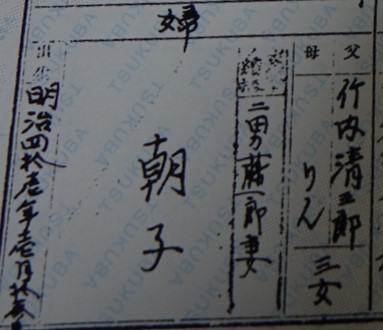 婦
父
竹内清三郎
三女
母
りん
二男藤一郎妻
朝子
出生
明治四拾壱年壱月
TSUKUBA